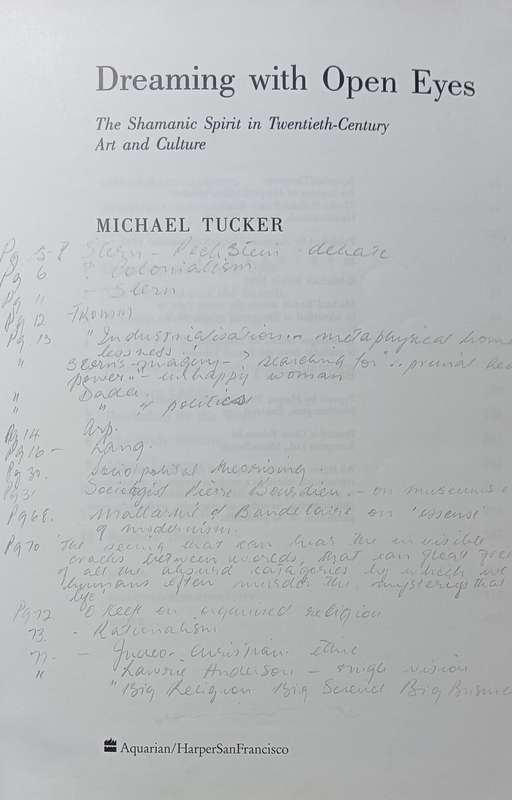 Dreaming with Open Eyes
The Shamanic Spirit in Twentieth-Century
Art and Culture
MICHAEL TUCKER
Pg 5-8 Stern - Pechstein - debate
Pg 6 " Colonialism
Pg " - Stern
Pg 12
Pg 13 "Industrialisation metaphysical home
lessness"
" Stern's imagery - ? searching for ".. primal
power" - unhappy woman
" Dada.
" " & politics
Pg 14 Arp.
Pg 16 - Lang.
Pg 30. Socio political theorising.
Pg 31 Sociologist Pierre Bourdieu. - on museums
Pg 68. Mallarmé & Baudelaire on 'essense'
of modernism.
Pg 70 "The seeing that can heal the invisible
cracks between worlds, that can
of all the absurd categories by which we
humans often murder the mysteries that
life"
Pg 72 O Keef on organised religion
73. - Rationalism
77. - Judeo-Christian ethic
" Laurie Anderson - single vision
"Big Religion Big Science Big
Aquarian/HarperSanFrancisco